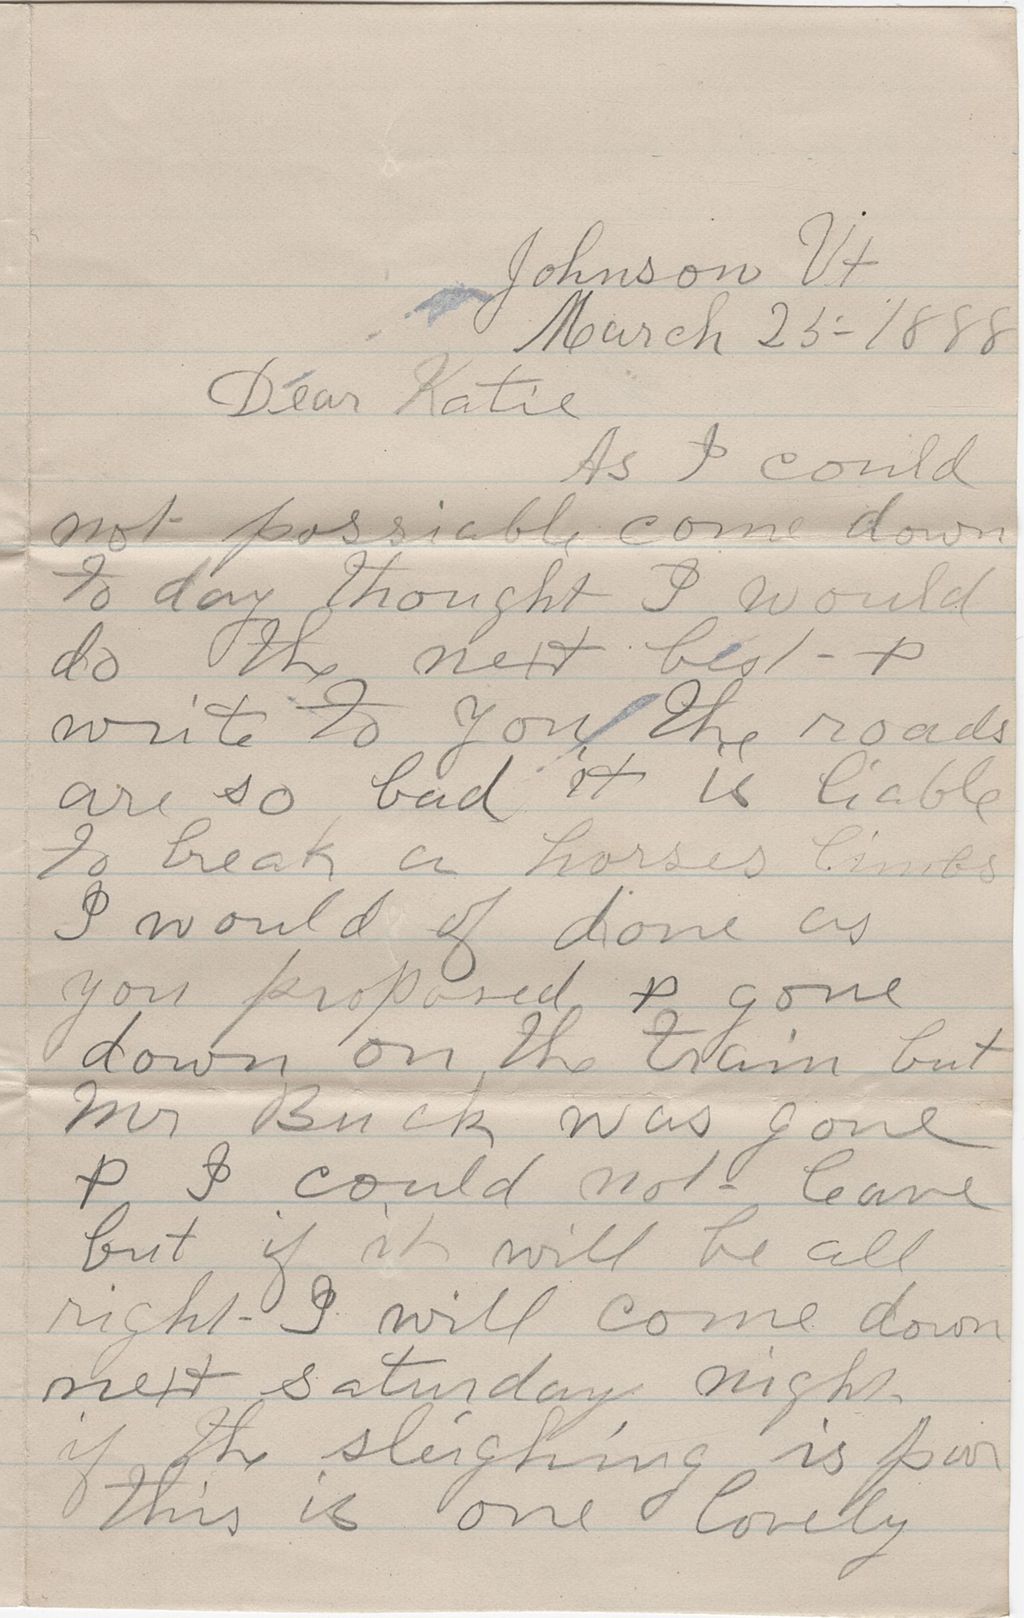 Johnson Vt
March 25 - 1888
Dear Katie
As I could
not possiable come down
to day thought I would
do the next best - &
write to you the roads
are so bad it is liable
to break a horses limbs
I would of done as
you proposed & gone
down on the train but
Mr Buck was gone
& I could not - leave
but if it will be all
right - I will come down
next saturday night
if the sleighing is poor
this is one lovely